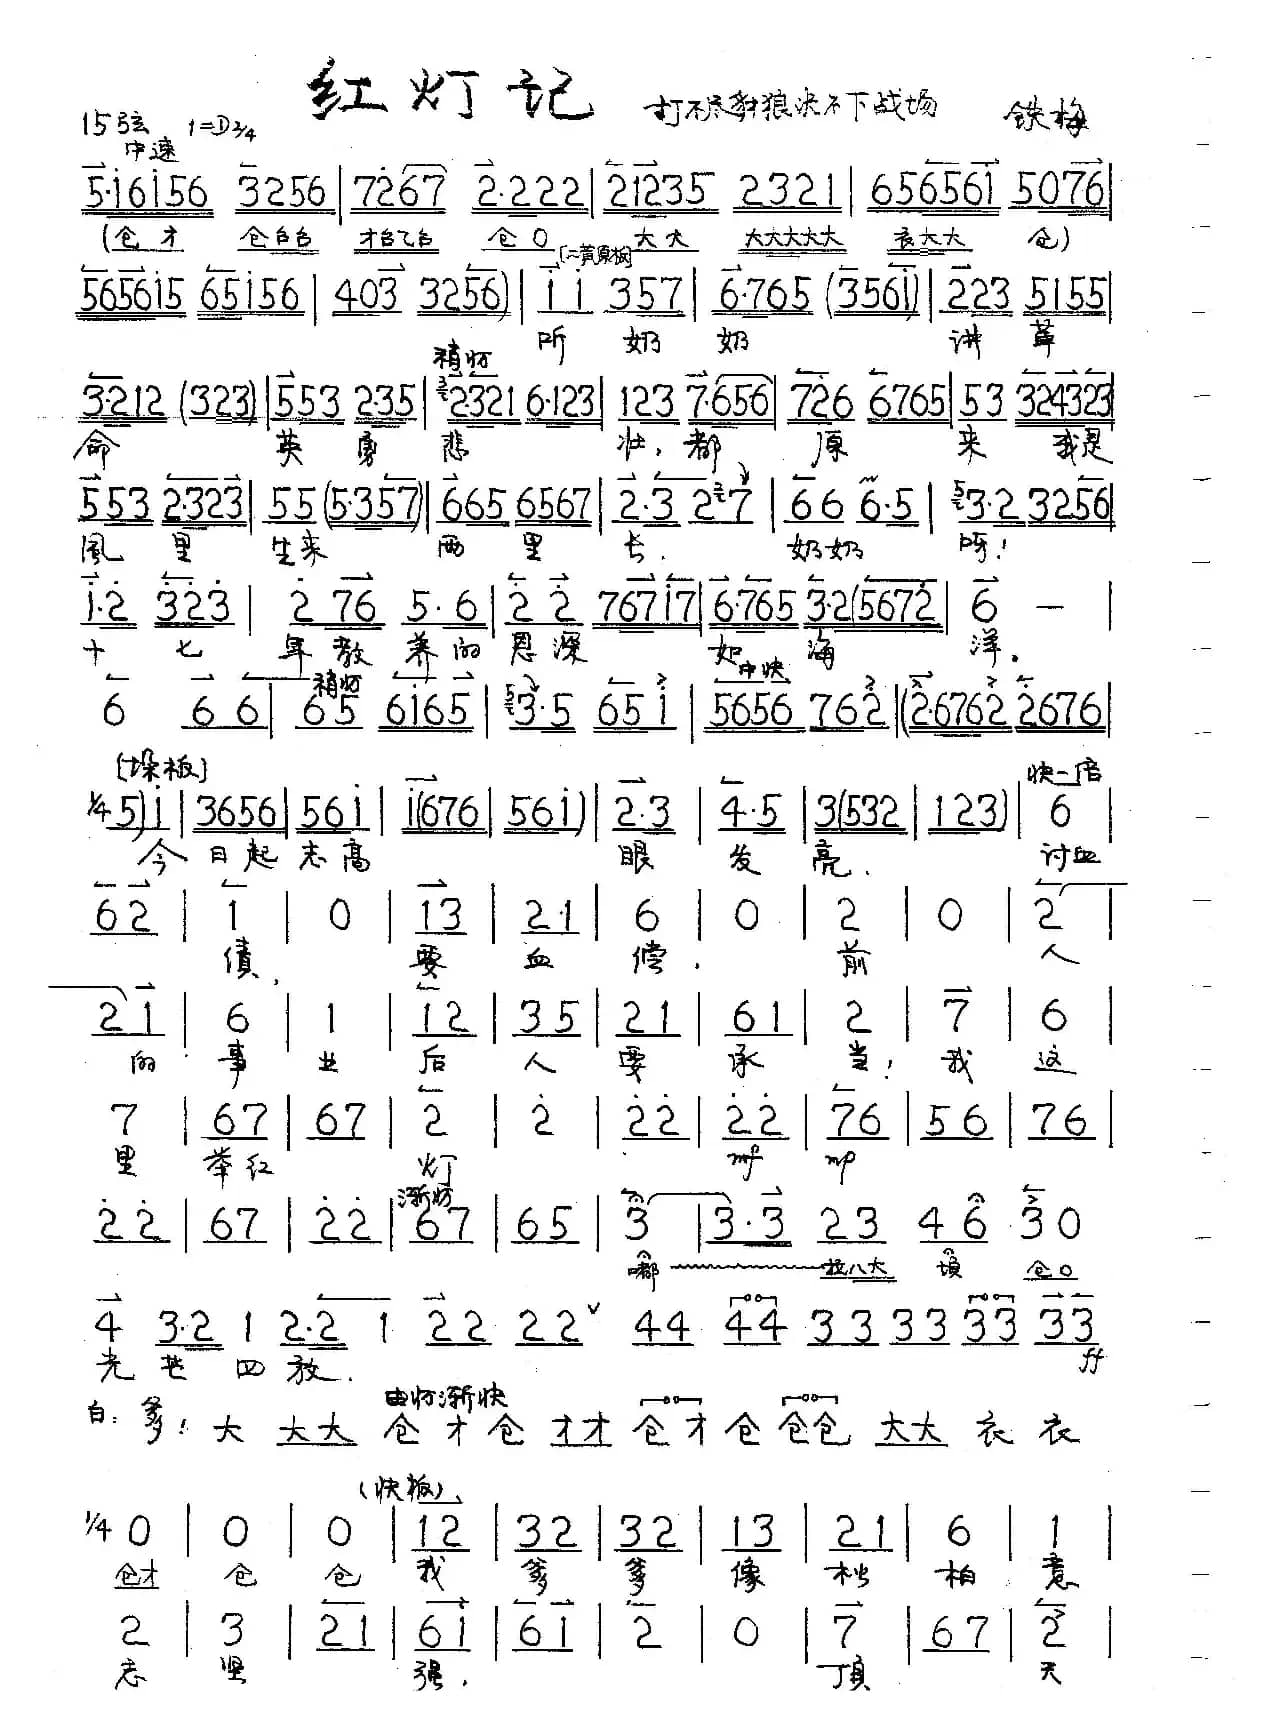 红灯记 打不尽豺狼决不下战场 铁梅
15弦 1=D 2/4
中速
5·i6i56 3256 | 7267 2·222 | 21235 2321 | 656561 5076
(仓才 仓台台 才台乙台 仓0 大大 大大大大大 衣大大 仓)
[二黄原板]
5656i5 65i56 | 403 3256) | i i 357 | 6·765 (356i) | 223 5155
听奶奶 讲革
稍慢
3·212 (323) | 553 2·35 | 2·321 6·123 | 123 7·656 | 726 6765 | 53 324323
命 英勇悲壮,都原来我是
553 2·323 | 55 (5·357) | 665 6567 | 2·3 27 | 66 6·5 | 3·2 3256
風里生来 雨里长. 奶奶呀!
i·2 323 | 2 76 5·6 | 2 2 767i7 | 6·765 3·2(5672 | 6 —
十七年教养的恩深如海洋.
稍慢 中快
6 66 | 65 6i65 | 3·5 65i | 5656 762 | (2·6762 2676
[垛板] 快一倍
1/4 5) i | 3656 | 56i | i(676 | 56i) | 2·3 | 4·5 | 3(532 | 123) | 6
今日起志高 眼发亮. 讨血
62 | 1 | 0 | 13 | 2·1 | 6 | 0 | 2 | 0 | 2
债, 要血偿. 前人
21 | 6 | 1 | 12 | 35 | 21 | 61 | 2 | 7 | 6
的事业后人要承当! 我这
7 | 67 | 67 | 2 | 2 | 22 | 22 | 76 | 56 | 76
里举红灯 mf mp
渐慢
22 | 67 | 22 | 67 | 65 | 3 | 3·3 23 46 30
嘟 拉八大 顷 仓0
4 3·2 1 2·2 1 22 22 44 44 33 33 33 33
光芒四放. ff
由慢渐快
白:爹! 大 大大 仓才仓 才才 仓才仓 仓仓 大大 衣 衣
(快板)
1/4 0 | 0 | 0 | 12 | 32 | 32 | 13 | 21 | 6 | 1
仓才 仓 仓 我爹爹像松柏意
2 | 3 | 21 | 6i | 6i | 2 | 0 | 7 | 67 | 2
志坚强, 顶天